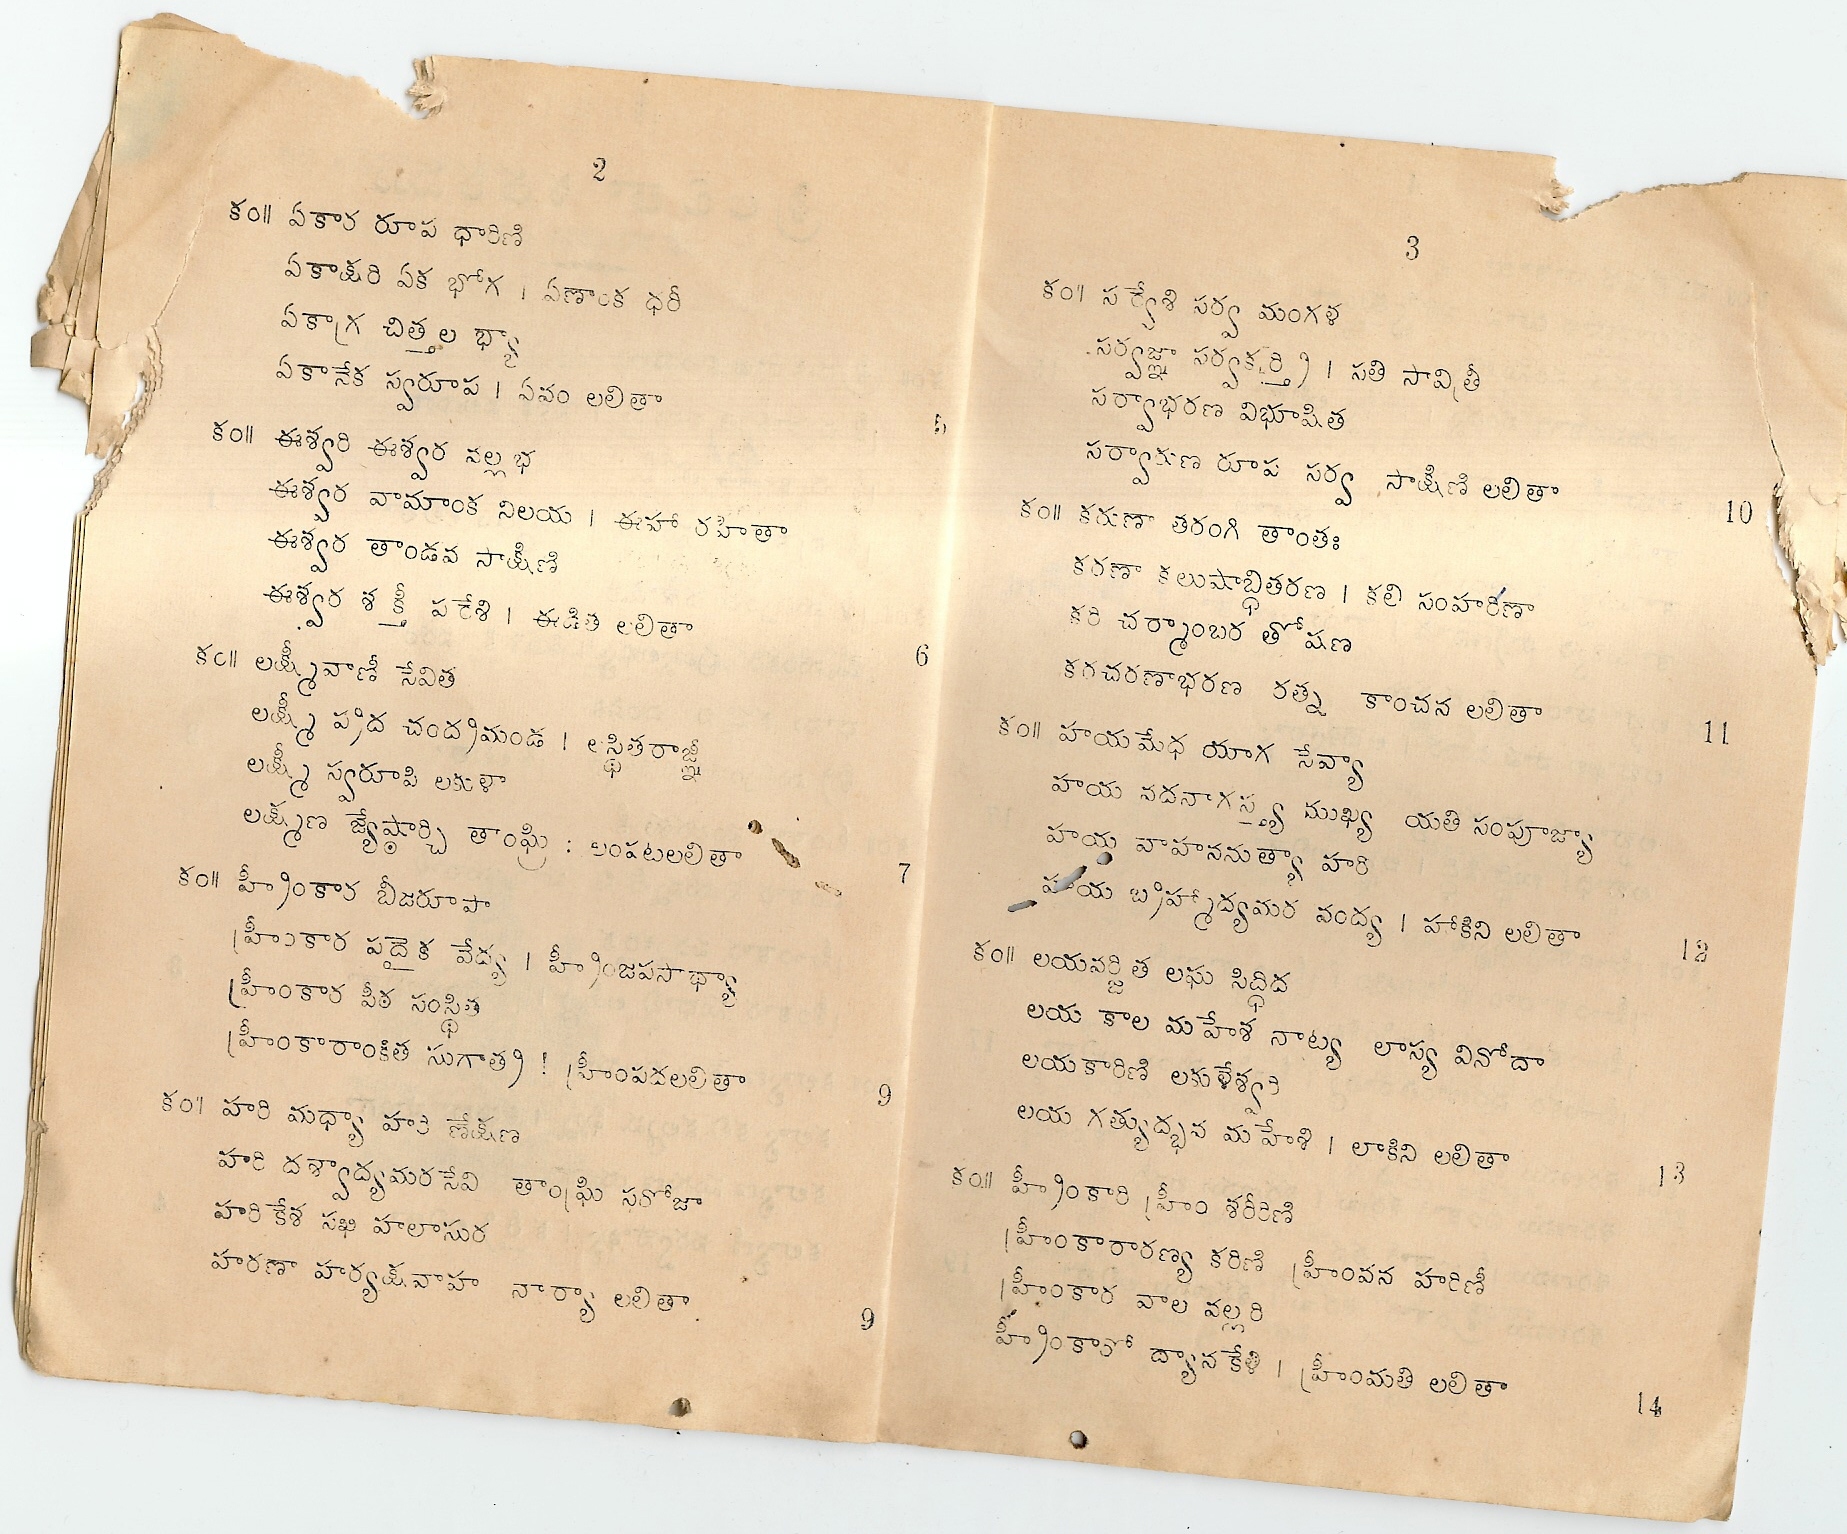 2
కం॥ ఏకార రూప ధారిణి
ఏకాక్షరి ఏక భోగ । ఏణాంక ధరీ
ఏకాగ్ర చిత్తల భ్యా
ఏకానేక స్వరూప । ఏవం లలితా
5
కం॥ ఈశ్వరి ఈశ్వర వల్లభ
ఈశ్వర వామాంక నిలయ । ఈహా రహితా
ఈశ్వర తాండవ సాక్షిణి
ఈశ్వర శక్తీ పరేశి । ఈడిత లలితా
6
కం॥ లక్ష్మీవాణీ సేవిత
లక్ష్మీ ప్రద చంద్రమండ । లస్థితరాజ్ఞీ
లక్ష్మీ స్వరూపి లకుళా
లక్ష్మణ జ్యేష్ఠార్చి తాంఘ్రి : లంపటలలితా
7
కం॥ హ్రీంకార బీజరూపా
హ్రీంకార పదైక వేద్య । హ్రీంజపసాధ్యా
హ్రీంకార పీఠ సంస్థిత
హ్రీంకారాంకిత సుగాత్రి ! హ్రీంపదలలితా
9
కం॥ హరి మధ్యా హరి ణేక్షణ
హరి దశ్వాద్యమరసేవి తాంఘ్రి సరోజా
హరికేశ సఖి హలాసుర
హరణా హర్యక్షవాహ నార్యా లలితా
9
3
కం॥ సర్వేశి సర్వ మంగళ
సర్వజ్ఞా సర్వకర్త్రి । సతి సావిత్రీ
సర్వాభరణ విభూషిత
సర్వారుణ రూప సర్వ సాక్షిణి లలితా
10
కం॥ కరుణా తరంగి తాంతః
కరణా కలుషాబ్ధితరణ । కలి సంహరిణా
కరి చర్మాంబర తోషణ
కరచరణాభరణ రత్న కాంచన లలితా
11
కం॥ హయమేధ యాగ సేవ్యా
హయ వదనాగస్త్య ముఖ్య యతి సంపూజ్యా
హయ వాహననుత్యా హరి
హయ బ్రహ్మాద్యమర వంద్య । హాకిని లలితా
12
కం॥ లయవర్జిత లఘు సిద్ధిద
లయ కాల మహేశ నాట్య లాస్య వినోదా
లయకారిణి లకుళేశ్వరి
లయ గత్యుద్భవ మహేశి । లాకిని లలితా
13
కం॥ హ్రీంకారి హ్రీం శరీరిణి
హ్రీంకారారణ్య కరిణి హ్రీంవన హరిణీ
హ్రీంకార వాల వల్లరి
హ్రీంకారో ద్యానకేళి । హ్రీంమతి లలితా
14